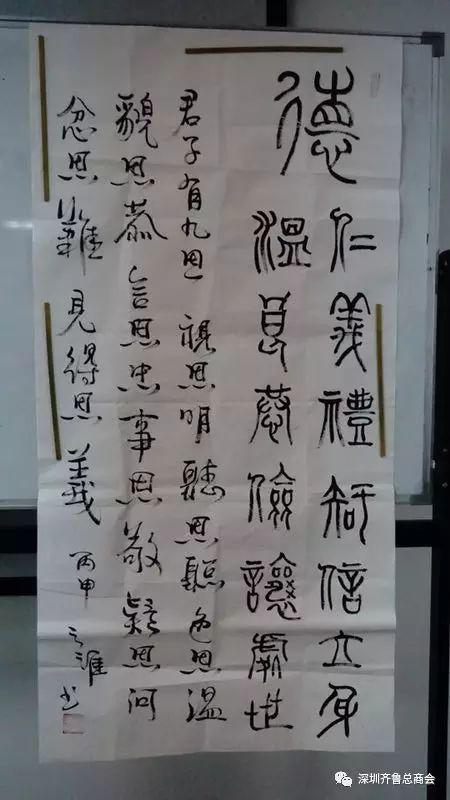 德
仁義禮知信立身
溫良恭儉讓處世
君子有九思 視思明聽思聰色思溫
貌思恭言思忠事思敬疑思问
忿思難見得思義 丙申 书
深圳齐鲁总商会